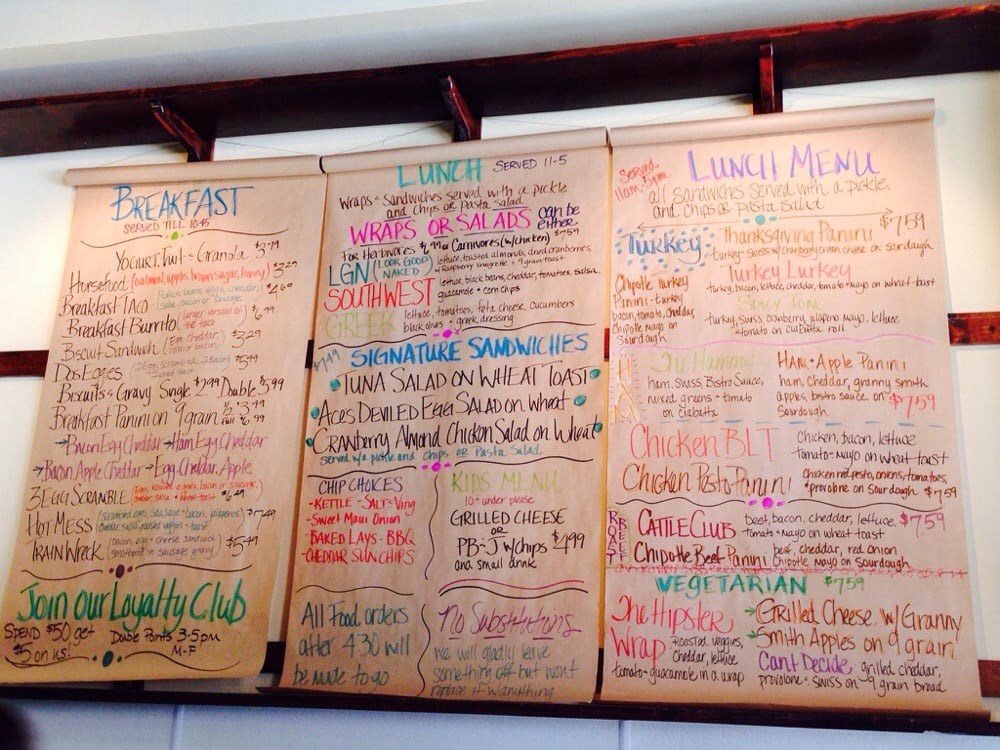 BREAKFAST
SERVED TILL 10:45
YOGURT-Fruit & Granola $3.79
Horsefood (oatmeal, apples, brown sugar, honey) $3.29
Breakfast Taco (black beans, egg & cheddar, salsa, bacon or sausage) $4.69
Breakfast Burrito (larger version of the taco) $6.99
Biscuit Sandwich (Egg, cheddar, ham or bacon) $3.29
Dos Eggies $5.99
Biscuits & Gravy Single $2.99 Double $5.99
Breakfast Panini on 9 grain 1/2 $3.79 full $6.99
→Bacon Egg Cheddar →Ham Egg Cheddar
→Bacon Apple Cheddar →Egg Cheddar Apple
3 EGG SCRAMBLE $6.49
HOT MESS
TRAIN WRECK (bacon, egg & cheese sandwich smothered in sausage gravy) $5.49
Join our Loyalty Club
SPEND $50 get
$5 on us!
Double Points 3-5pm
M-F
LUNCH SERVED 11-5
Wraps & Sandwiches served with a pickle
and chips or pasta salad
WRAPS OR SALADS can be either
For Herbivores or Carnivores (w/chicken) $7.59
LGN (LOOK GOOD NAKED) lettuce, toasted almonds, dried cranberries,
w/Raspberry Vinaigrette & 9 grain toast
SOUTHWEST lettuce, black beans, cheddar, tomatoes, salsa,
guacamole & corn chips
GREEK lettuce, tomatoes, feta cheese, cucumbers
black olives & greek dressing
$7.49 SIGNATURE SANDWICHES
TUNA SALAD ON WHEAT TOAST
ACES DEVILED EGG SALAD on Wheat
CRANBERRY ALMOND CHICKEN SALAD on Wheat
served w/a pickle and chips or Pasta Salad
CHIP CHOICES
- KETTLE - SALT & Ving
- Sweet Maui Onion
- BAKED LAYS - BBQ
- CHEDDAR SUN CHIPS
KIDS MENU
10 & under please
GRILLED CHEESE
OR
PB & J w/chips $4.99
and small drink
All Food orders
after 4:30 will
be made to go
No Substitutions
we will gladly leave
something off but wont
replace it w/anything
LUNCH MENU
Served 11am-5pm
all sandwiches served with a pickle,
and chips or pasta salad
Turkey Thanksgiving Panini $7.59
turkey & swiss w/cranberry cream cheese on sourdough
Chipotle Turkey
Panini - turkey
bacon, tomato, cheddar,
chipotle mayo on
sourdough
Turkey Lurkey
turkey, bacon, lettuce, cheddar, tomato & mayo on wheat toast
Spicy Tom
turkey, swiss cranberry, jalapeno mayo, lettuce
& tomato on ciabatta roll
HAM
The Hammy
ham, Swiss, Bistro Sauce,
mixed greens & tomato
on ciabatta
HAM & Apple Panini
ham, cheddar, granny smith
apples, bistro sauce on
Sourdough $7.59
Chicken BLT chicken, bacon, lettuce
tomato & mayo on wheat toast
Chicken Pesto Panini chicken red pesto, onions, tomatoes,
& provolone on Sourdough $7.59
ROAST BEEF
CATTLE CLUB beef, bacon, cheddar, lettuce, $7.59
tomato & mayo on wheat toast
Chipotle Beef Panini beef, cheddar, red onion
Chipotle Mayo on Sourdough
VEGETARIAN $7.59
The Hipster
Wrap - Roasted veggies,
cheddar, lettuce
tomato & guacamole in a wrap
→Grilled Cheese w/ Granny
→Smith Apples on 9 grain
Can't Decide, grilled cheddar,
provolone & swiss on 9 grain bread